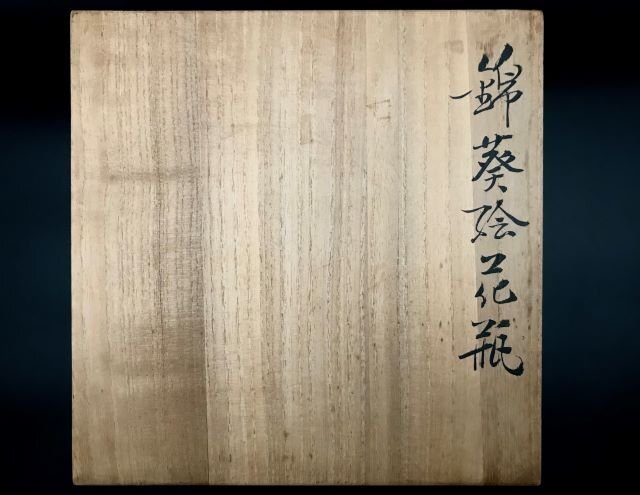 錦葵絵花瓶